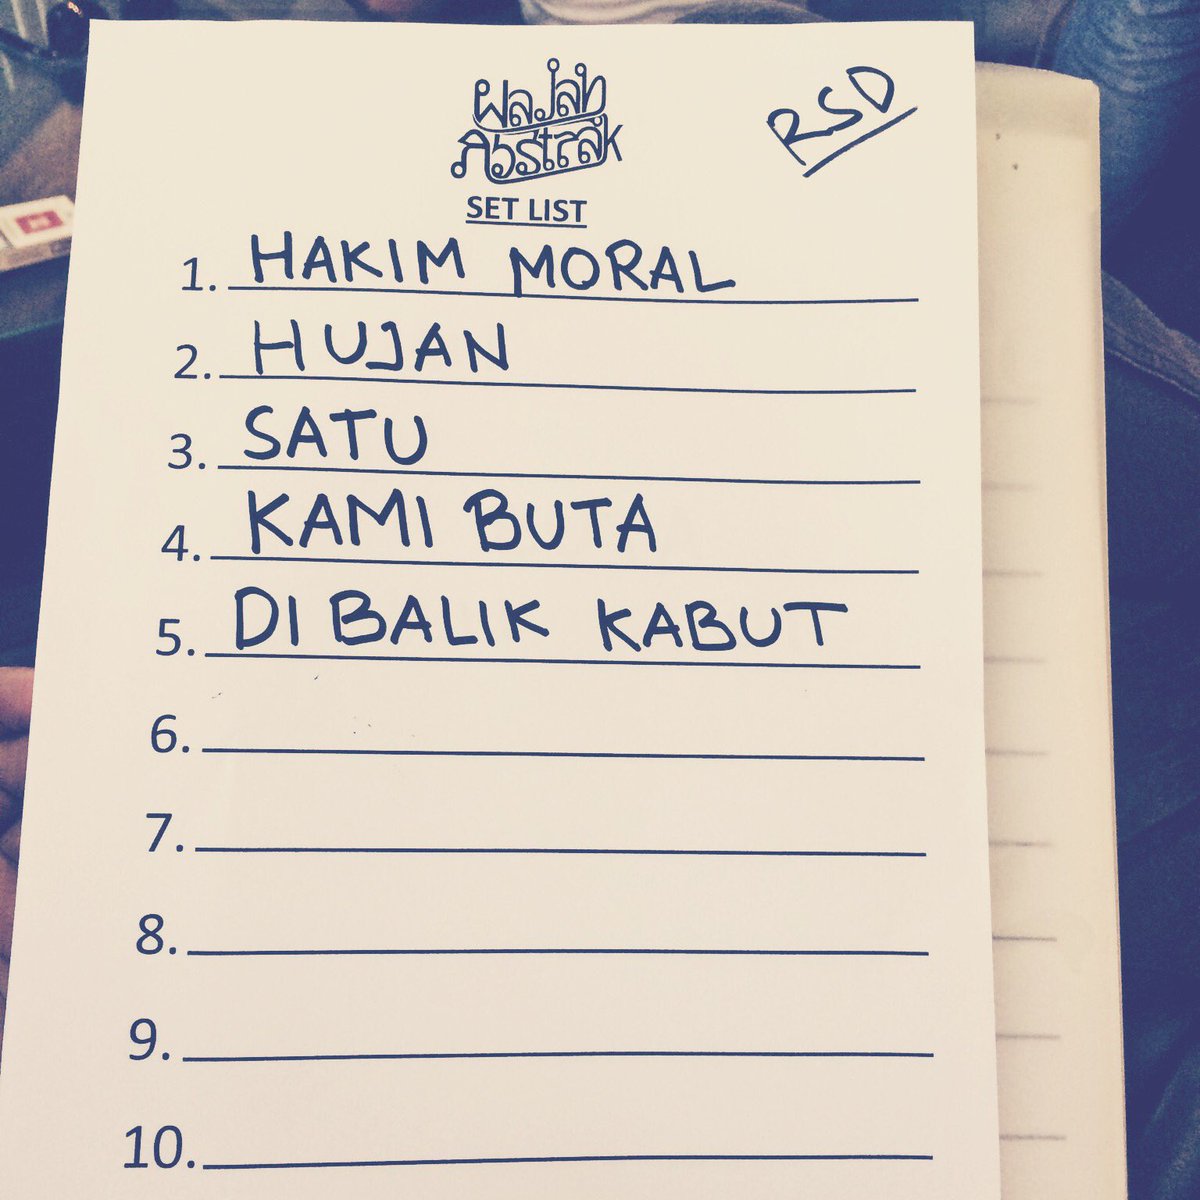 Wajah
Abstrak
RSD
SET LIST
1. HAKIM MORAL
2. HUJAN
3. SATU
4. KAMI BUTA
5. DI BALIK KABUT
6.
7.
8.
9.
10.